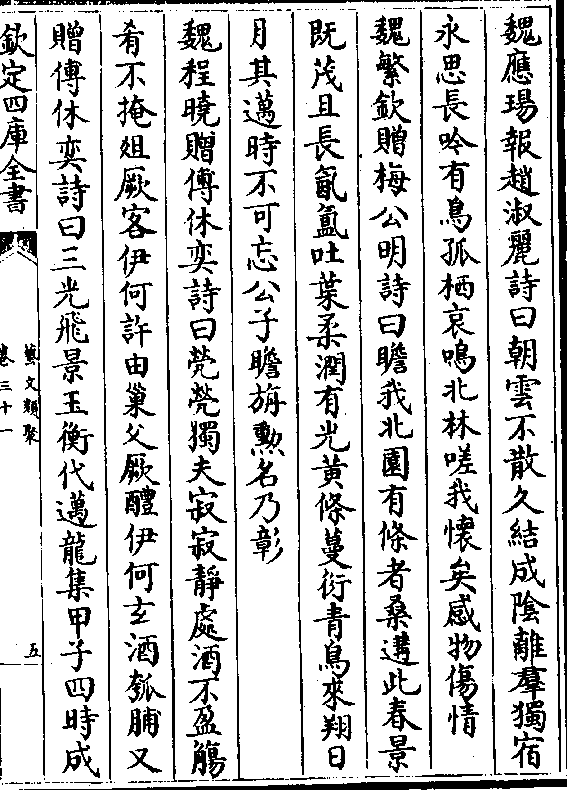 魏應瑒報趙淑麗詩曰朝雲不散久結成陰離羣獨宿
永思長吟有鳥孤栖哀鳴北林嗟我懷矣感物傷情
魏繁欽贈梅公明詩曰瞻我北園有條者桑遘此春景
既茂且長氤氳吐葉柔潤有光黃條蔓衍青鳥來翔日
月其邁時不可忘公子瞻旃勲名乃彰
魏程曉贈傅休奕詩曰煢煢獨夫寂寂靜處酒不盈觴
肴不掩俎厥客伊何許由巢父厥醴伊何玄酒瓠脯又
贈傅休奕詩曰三光飛景玉衡代邁龍集甲子四時成
欽定四庫全書
藝文類聚
卷三十一
五